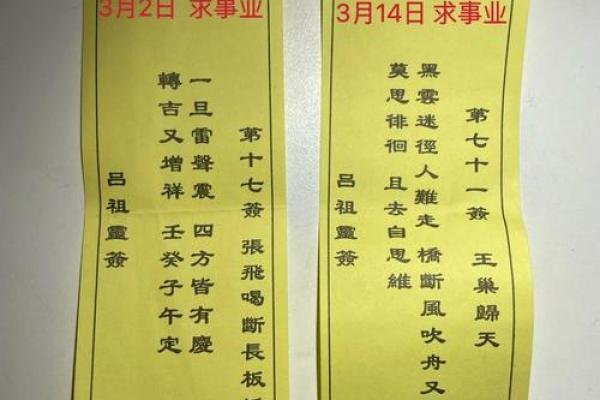 3月2日 求事业
第十七簽 張飛喝斷長板
一旦雷聲震 四方皆有慶
轉吉又增祥 壬癸子午定
呂祖靈簽
3月14日 求事业
第七十一簽 王巢歸天
黑雲迷徑人難走 橋斷風吹舟又
莫思徘徊 且去自思維
呂祖靈簽